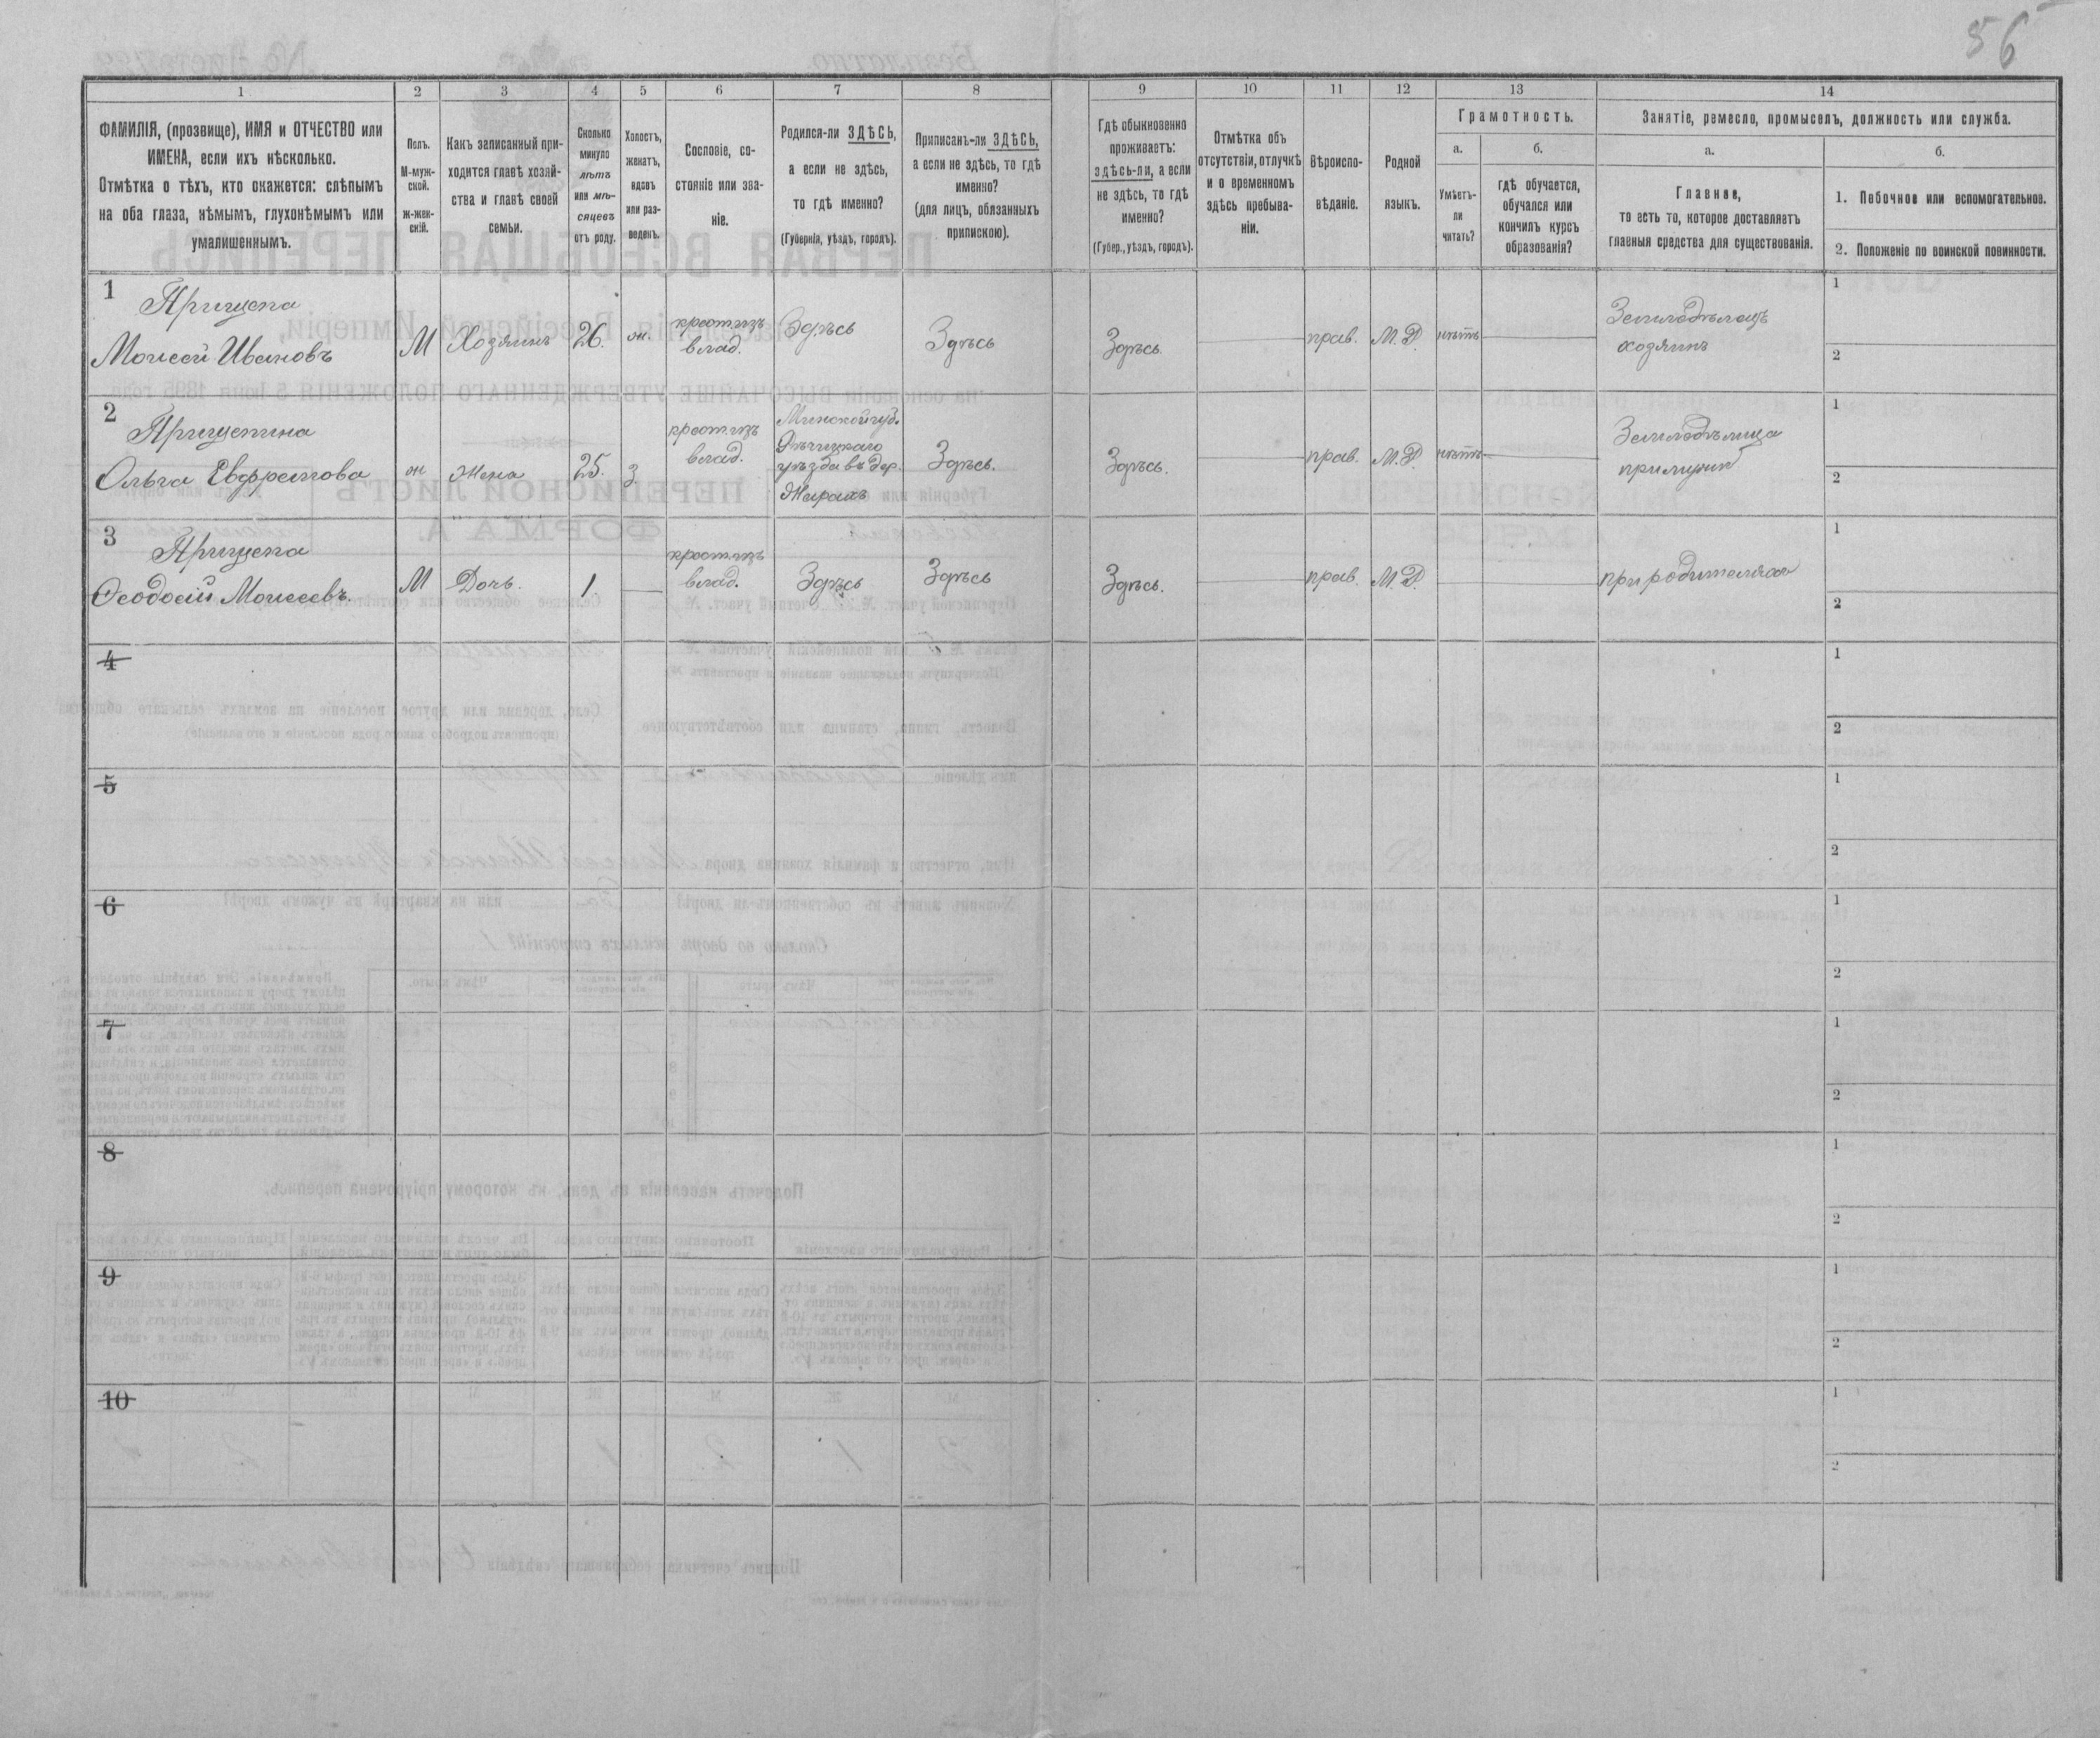 56
1
2
3
4
5
6
7
8
9
10
11
12
13
14
ФАМИЛІЯ, (прозвище), ИМЯ и ОТЧЕСТВО или
ИМЕНА, если ихъ нѣсколько.
Отмѣтка о тѣхъ, кто окажется: слѣпымъ
на оба глаза, нѣмымъ, глухонѣмымъ или
умалишеннымъ.
Полъ.
М-муж-
ской.
Ж-жен-
скій.
Какъ записанный при-
ходится главѣ хозяй-
ства и главѣ своей
семьи.
Сколько
минуло
лѣтъ
или мѣ-
сяцевъ
отъ роду.
Холостъ,
женатъ,
вдовъ
или раз-
веденъ.
Сословіе, со-
стояніе или зва-
ніе.
Родился-ли ЗДѢСЬ,
а если не здѣсь,
то гдѣ именно?
(Губернія, уѣздъ, городъ).
Приписанъ-ли ЗДѢСЬ,
а если не здѣсь, то гдѣ
именно?
(для лицъ, обязанныхъ
припискою).
Гдѣ обыкновенно
проживаетъ:
здѣсь-ли, а если
не здѣсь, то гдѣ
именно?
(Губер., уѣздъ, городъ).
Отмѣтка объ
отсутствіи, отлучкѣ
и о временномъ
здѣсь пребыва-
ніи.
Вѣроиспо-
вѣданіе.
Родной
языкъ.
Грамотность.
а.
Умѣетъ-
ли
читать?
б.
гдѣ обучается,
обучался или
кончилъ курсъ
образованія?
Занятіе, ремесло, промыселъ, должность или служба.
а.
Главное,
то есть то, которое доставляетъ
главныя средства для существованія.
б.
1. Побочное или вспомогательное.
2. Положеніе по воинской повинности.
1
Прищепа
Моисей Ивановъ
М
Хозяинъ
26.
ж.
крест. изъ
влад.
Здѣсь
Здѣсь
Здѣсь.
прав.
М. Р.
нѣтъ
Земледѣлецъ
хозяинъ
1
2
2
Прищепина
Ольга Евфремова
ж
Жена
25.
3
крест. изъ
влад.
Минской губ.
Рѣчицкаго
уѣзда въ дер.
Здѣсь.
Здѣсь.
прав.
М. Р.
нѣтъ
Земледѣлица
при мужѣ
1
2
3
Прищепа
Ѳеодосій Моисеевъ.
М
Дочь.
1.
крест. изъ
влад.
Здѣсь
Здѣсь
Здѣсь.
прав.
М. Р.
при родителяхъ
1
2
4
1
2
5
1
2
6
1
2
7
1
2
8
1
2
9
1
2
10
1
2